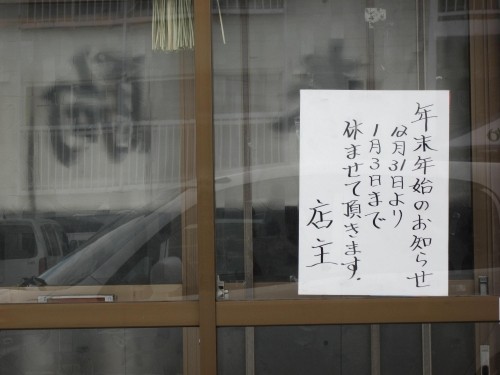 年末年始のお知らせ
12月31日より
1月3日まで
休ませて頂きます.
店主